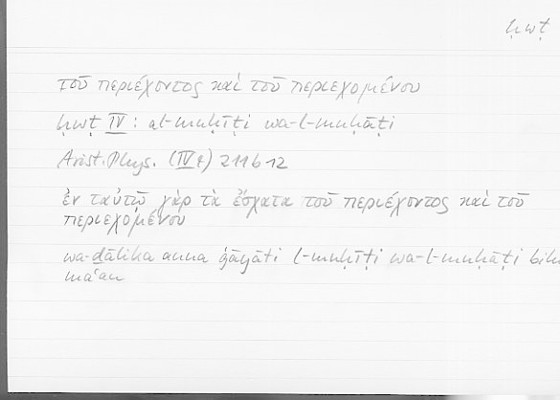 ḥwṭ
τοῦ περιέχοντος καὶ τοῦ περιεχομένου
ḥwṭ IV : al-muḥīṭi wa-l-muḥāṭi
Arist. Phys. (IV 4) 211b12
ἐν ταὐτῷ γὰρ τὰ ἔσχατα τοῦ περιέχοντος καὶ τοῦ
περιεχομένου
wa-ḏālika anna ġāyāti l-muḥīṭi wa-l-muḥāṭi
maʿan